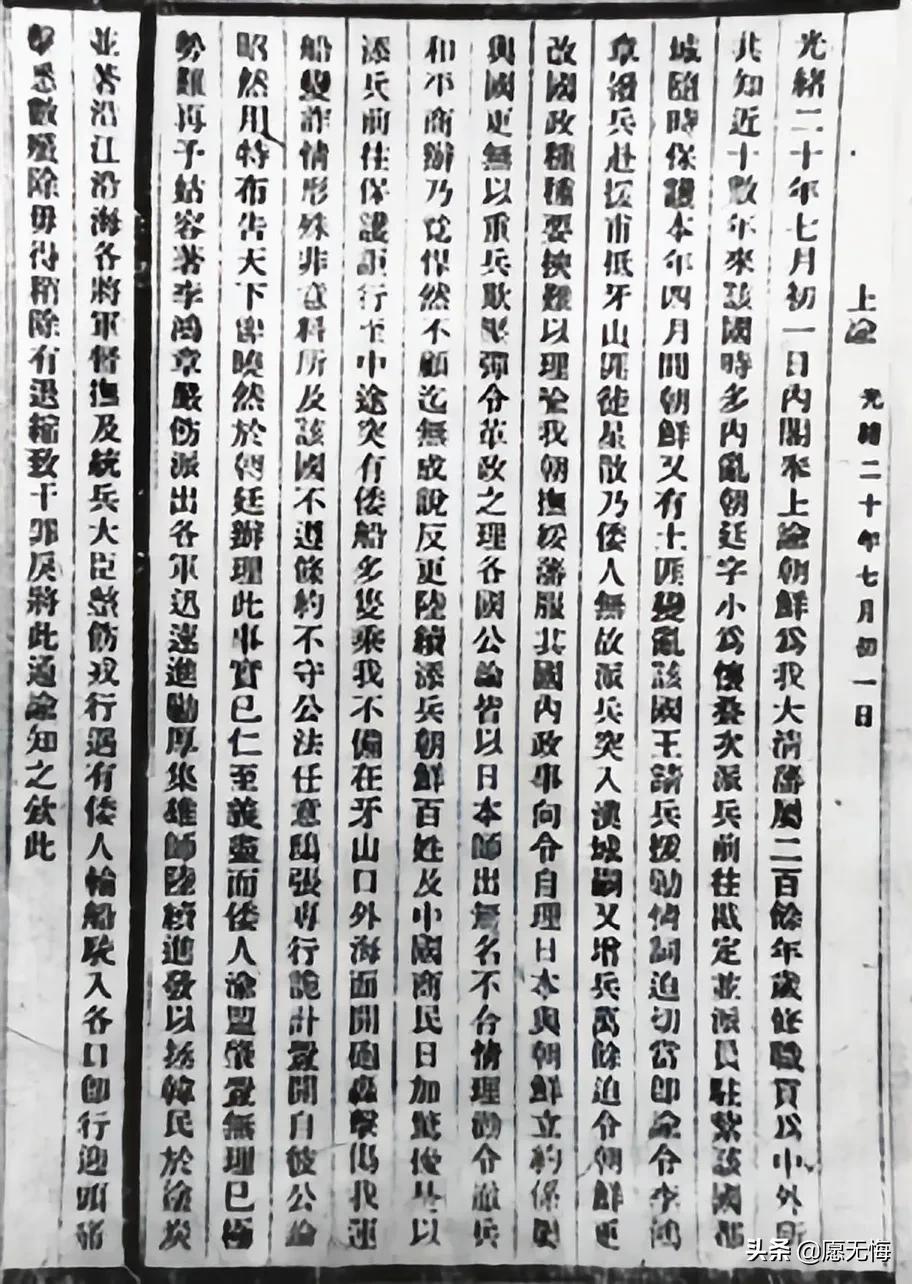 上諭 光緒二十年七月初一日
光緒二十年七月初一日內閣奉上諭朝鮮為我大清藩屬二百餘年歲修職貢為中外所
共知近十數年來該國時多內亂朝廷字小為懷疊次派兵前往戡定並派員駐紮該國都
城隨時保護本年四月間朝鮮又有土匪變亂該國王請兵援勦情詞迫切當即諭令李鴻
章撥兵赴援甫抵牙山匪徒星散乃倭人無故派兵突入漢城嗣又增兵萬餘迫令朝鮮更
改國政種種要挾難以理喻我朝撫綏藩服其國內政事向令自理日本與朝鮮立約係屬
與國更無以重兵欺壓彊令革政之理各國公論皆以日本師出無名不合情理勸令撤兵
和平商辦乃竟悍然不顧迄無成說反更陸續添兵朝鮮百姓及中國商民日加驚擾是以
添兵前往保護詎行至中途突有倭船多隻乘我不備在牙山口外海面開礮轟擊傷我運
船變詐情形殊非意料所及該國不遵條約不守公法任意鴟張專行詭計釁開自彼公論
昭然用特布告天下俾曉然於朝廷辦理此事實已仁至義盡而倭人渝盟肇釁無理已極
勢難再予姑容著李鴻章嚴飭派出各軍迅速進勦厚集雄師陸續進發以拯韓民於塗炭
並著沿江沿海各將軍督撫及統兵大臣整飭戎行遇有倭人輪船駛入各口即行迎頭痛
擊悉數殲除毋得稍有退縮致干罪戾將此通諭知之欽此
头条 @愿无悔